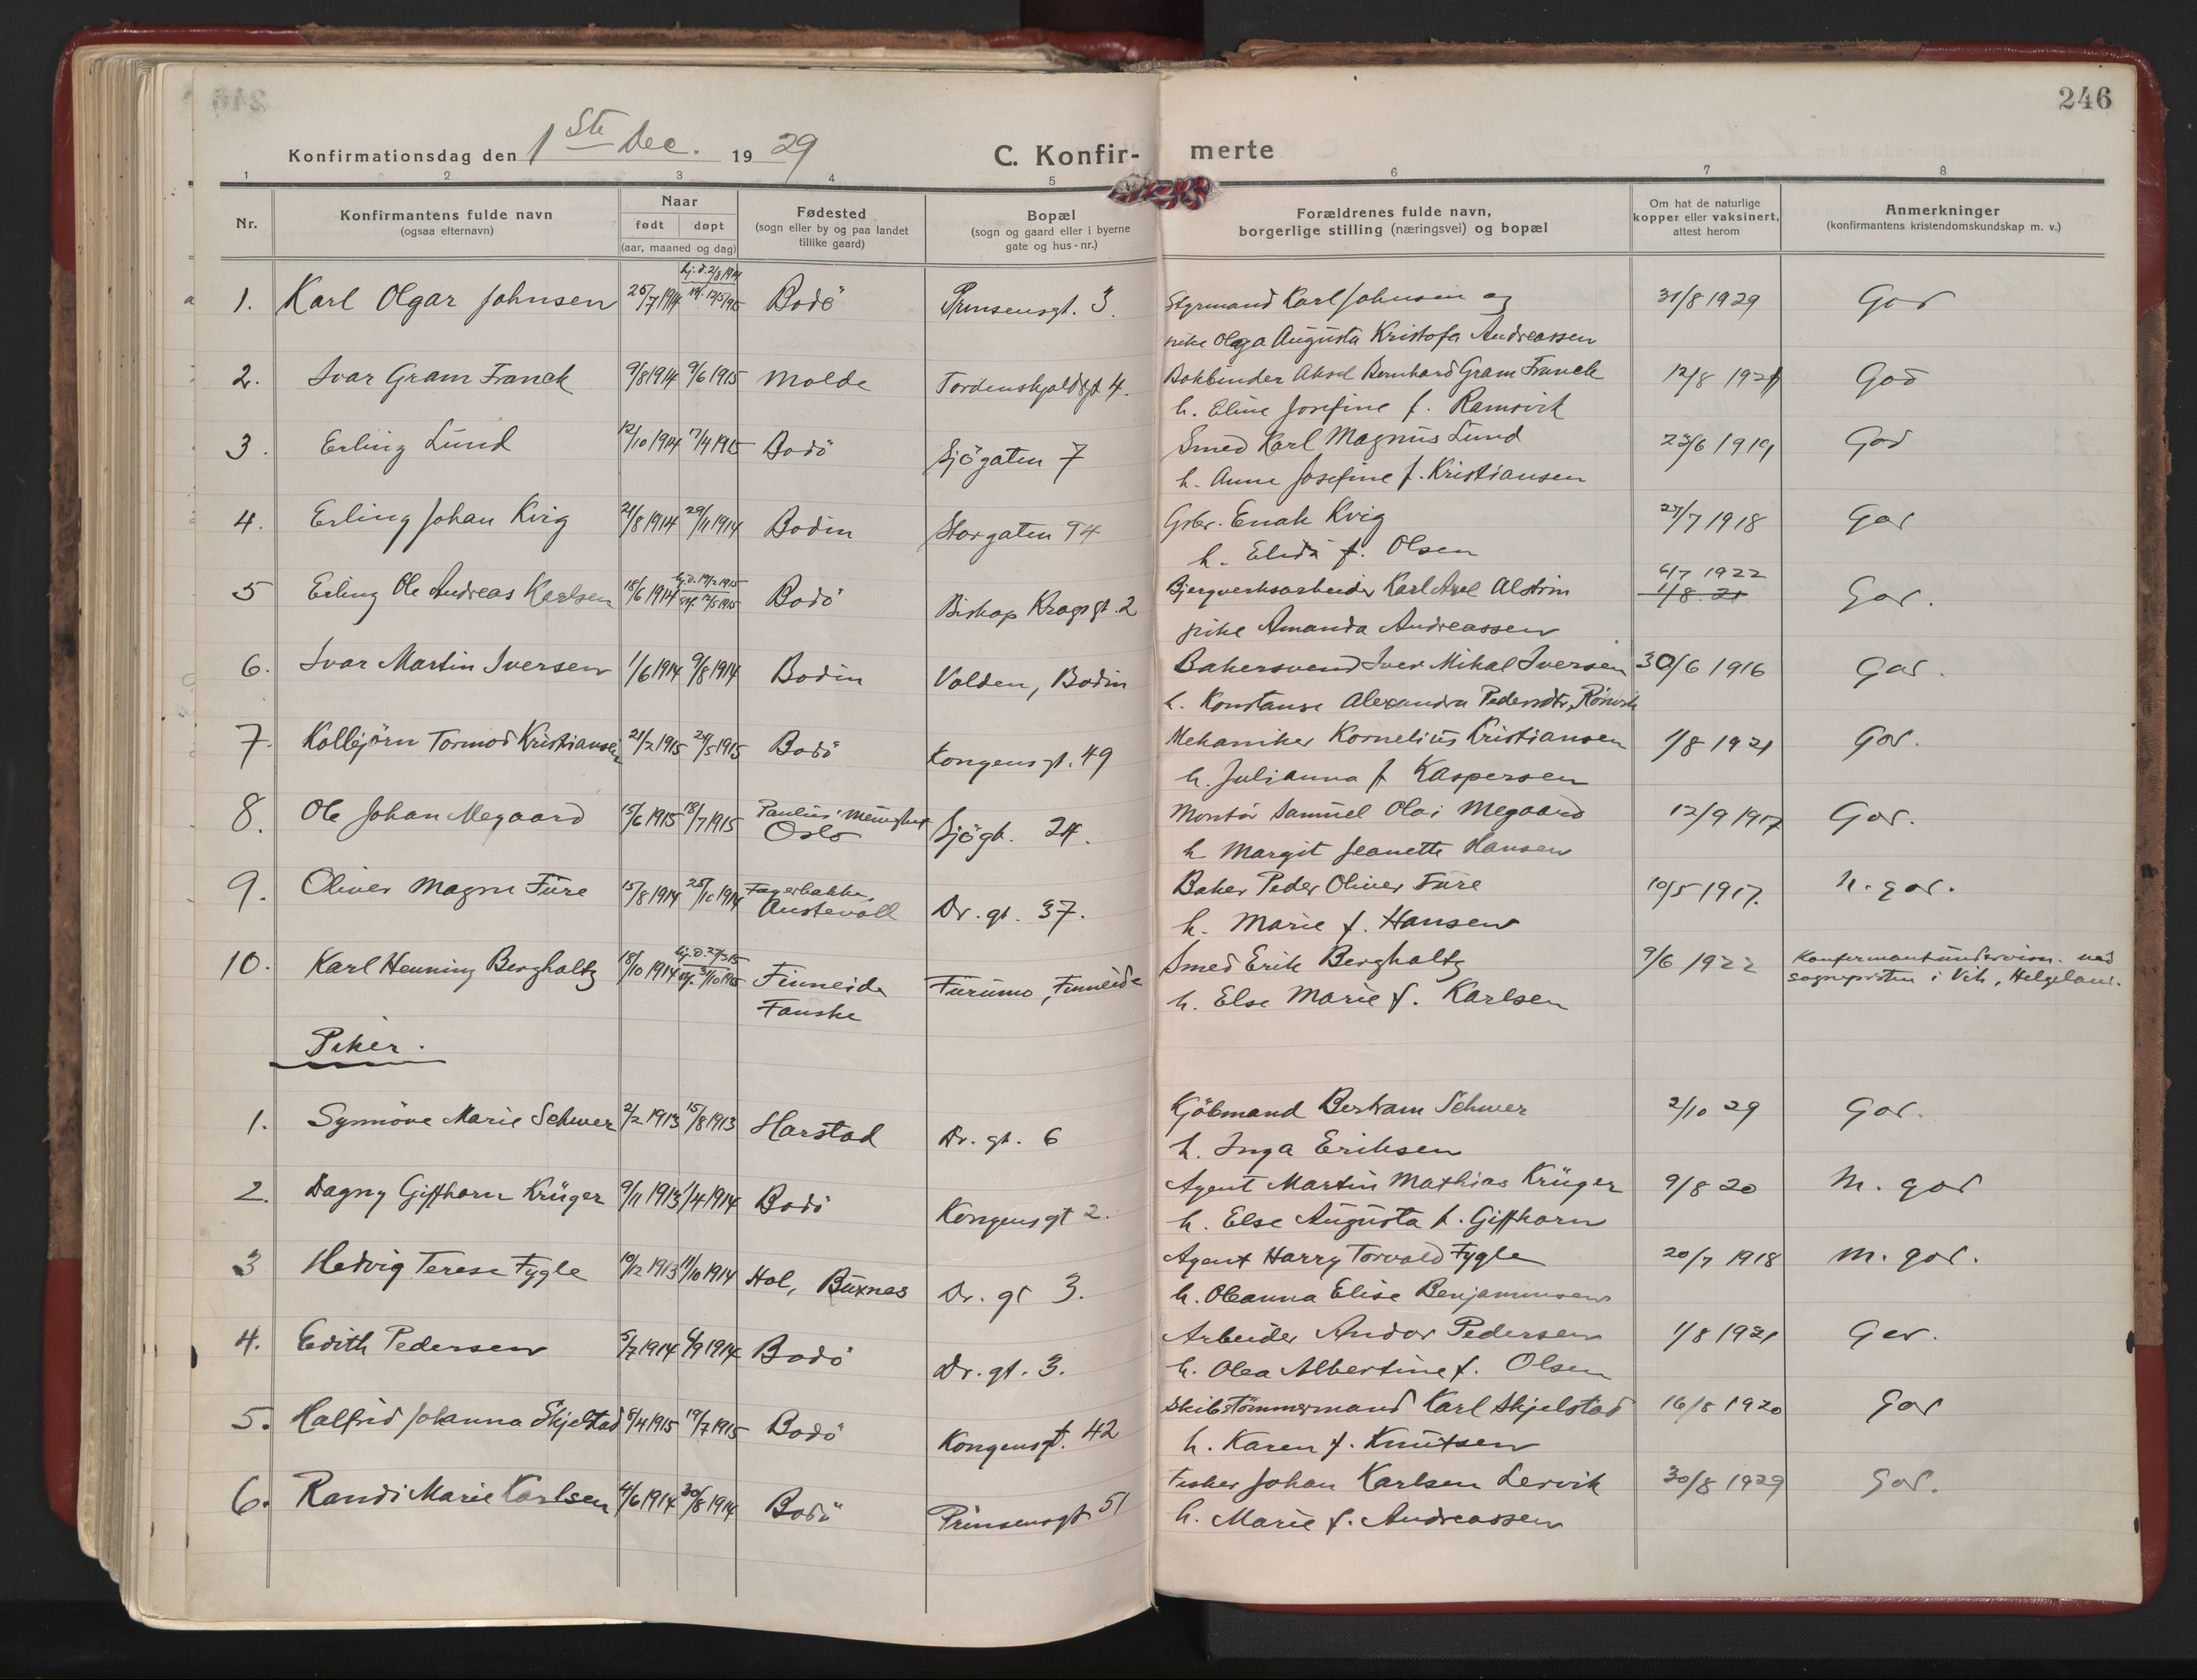 246
Konfirmationsdag den 1ste Dec. 1929 C. Konfirmerte
1 2 3 4 5 6 7 8
Nr. Konfirmantens fulde navn (ogsaa efternavn) Naar født døpt (aar, maaned og dag) Fødested (sogn eller by og paa landet tillike gaard) Bopæl (sogn og gaard eller i byerne gate og hus-nr.) Forældrenes fulde navn, borgerlige stilling (næringsvei) og bopæl Om hat de naturlige kopper eller vaksinert, attest herom Anmerkninger (konfirmantens kristendomskundskap m. v.)
hj. d. 2/8 1914
1. Karl Olgar Johnsen 25/7 1914 12/5 1915 Bodö Prinsensgt. 3. Styrmand Karl Johnsen og 31/8 1929 God
pike Olga Augusta Kristofa Andreassen
2. Ivar Gram Franck 9/8 1914 9/6 1915 Molde Tordenskjoldsgt 4. Bokbinder Aksel Bernhard Gram Franck 12/8 1921 God
h. Eline Josefine f. Ramsvik
3. Erling Lund 12/10 1914 7/4 1915 Bodö Sjögaten 7 Smed Karl Magnus Lund 23/6 1919 God
h. Anne Josefine f. Kristiansen
4. Erling Johan Kvig 21/8 1914 29/11 1914 Bodin Storgaten 94 Grbr. Enok Kvig 27/7 1918 God
h. Elida f. Olsen
hj. d. 19/2 1915 6/7 1922
5 Erling Ole Andreas Karlsen 18/6 1914 12/5 1915 Bodö Biskop Kragsgt. 2 Bjergverksarbeider Karl Axel Alstrin 1/8 21 God.
pike Amanda Andreassen
6. Ivar Martin Iversen 1/6 1914 9/8 1914 Bodin Volden, Bodin Bakersvend Iver Mikal Iversen 30/6 1916 God.
h. Konstanse Alexandra Pedersdtr, Rönvik
7. Kolbjörn Tormod Kristiansen 21/2 1915 24/5 1915 Bodö Kongensgt. 49 Mekaniker Kornelius Kristiansen 1/8 1921 God.
h. Julianna f Kaspersen
8. Ole Johan Megaard 15/6 1915 18/7 1915 Paulus' menighet Oslo Sjögt. 24. Montör Samuel Olai Megaard 12/9 1917 God.
h Margit Jeanette Hansen
9. Oliver Magne Fure 15/8 1914 25/10 1914 Fagerbakke, Austevoll Dr. gt. 37. Baker Peder Oliver Fure 10/5 1917. n. god.
h. Marie f. Hansen
10. Karl Henning Bergholtz 18/10 1914 31/10 1915 Finneide Furumo, Finneide Smed Erik Bergholtz 9/6 1922 Konfirmantundervisn. ved
Fauske h. Else Marie f. Karlsen sognepresten i Vik, Helgeland.
Piker.
1. Synnöve Marie Schwer 2/2 1913 15/8 1913 Harstad Dr. gt. 6 Kjöbmand Bertram Schwer 2/10 29 God.
h. Inga Eriksen
2. Dagny Giffhorn Krüger 9/11 1913 1/4 1914 Bodö Kongensgt 2. Agent Martin Mathias Krüger 9/8 20 m. god
h. Else Augusta f. Giffhorn
3 Hedvig Terese Fygle 10/12 1913 11/10 1914 Hol, Buxnes Dr. gt 3. Agent Harry Torvald Fygle 20/7 1918 m. god.
h. Oleanna Elise Benjaminsen
4. Edith Pedersen 5/7 1914 6/9 1914 Bodö Dr. gt. 3. Arbeider Andor Pedersen 1/8 1921 God.
h. Olea Albertine f. Olsen
5. Halfrid Johanna Skjelstad 8/4 1915 19/7 1915 Bodö Kongensgt. 42 Skibstömmermand Karl Skjelstad 16/8 1920 God
h. Karen f. Knutsen
6. Randi Marie Karlsen 4/6 1914 30/8 1914 Bodö Prinsensgt 51 Fisker Johan Karlsen Lervik 30/8 1929 God.
h. Marie f. Andreassen